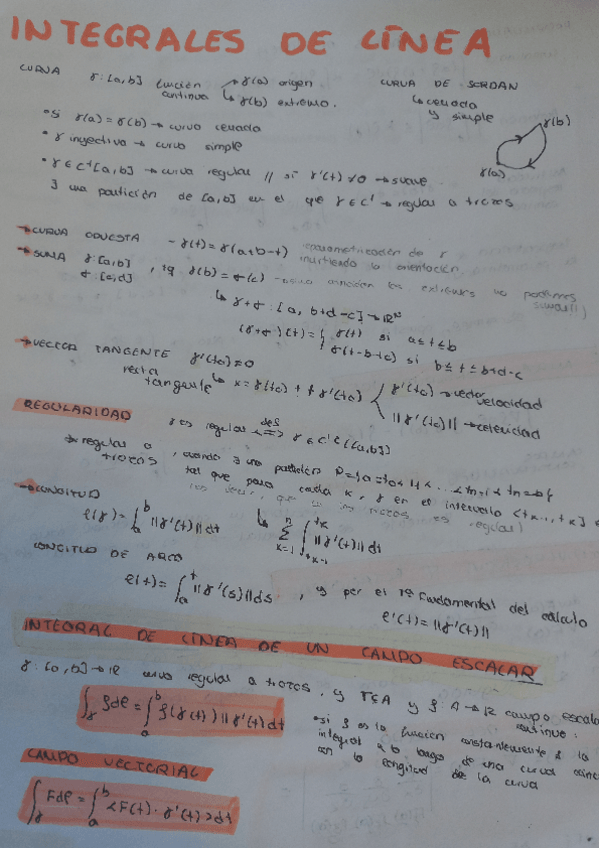 INTEGRALES DE LÍNEA
CURVA γ: [a,b] función continua → γ(a) origen ↳ γ(b) extremo.
CURVA DE JORDAN ↳ cerrada y simple
γ(b)
γ(a)
• Si γ(a) = γ(b) → curva cerrada
• γ inyectiva → curva simple
• γ ∈ C¹[a,b] → curva regular // si γ'(t) ≠ 0 → suave
∃ una partición de [a,b] en el que γ ∈ C¹ → regular a trozos
→ CURVA OPUESTA -γ(t) = γ(a+b-t) reparametrización de γ invirtiendo la orientación
→ SUMA γ: [a,b] σ: [c,d], tq. γ(b) = σ(c) → si no coinciden los extremos no podemos sumar
↳ γ+σ: [a, b+d-c] → ℝᴺ
(γ+σ)(t) = { γ(t) si a ≤ t ≤ b
σ(t-b+c) si b ≤ t ≤ b+d-c
→ VECTOR TANGENTE γ'(t₀) ≠ 0
recta tangente ↳ x = γ(t₀) + t γ'(t₀) γ'(t₀) → vector velocidad
||γ'(t₀)|| → celeridad
REGULARIDAD γ es regular <=> def γ ∈ C¹([a,b])
→ regular a trozos, cuando ∃ una partición P = {a = t₀ < t₁ < ... < tₙ₋₁ < tₙ = b}
tal que para cada k, γ en el intervalo <tₖ₋₁, tₖ]
→ LONGITUD
ℓ(γ) = ∫ₐᵇ ||γ'(t)|| dt ↳ Σₖ₌₁ⁿ ∫ₜₖ₋₁ᵗᵏ ||γ'(t)|| dt
LONGITUD DE ARCO
ℓ(t) = ∫ₐᵗ ||γ'(s)|| ds, y por el 1º Fundamental del cálculo
ℓ'(t) = ||γ'(t)||
INTEGRAL DE LÍNEA DE UN CAMPO ESCALAR
γ: [a,b] → ℝ curva regular a trozos, y Γ ⊆ A y f: A → ℝ campo escalar continuo:
∫γ f dℓ = ∫ₐᵇ f(γ(t)) ||γ'(t)|| dt
• si f es la función constantemente 1 la
integral a lo largo de una curva
con la longitud de la curva
CAMPO VECTORIAL
∫γ F dℓ = ∫ₐᵇ <F(t) · γ'(t)> dt